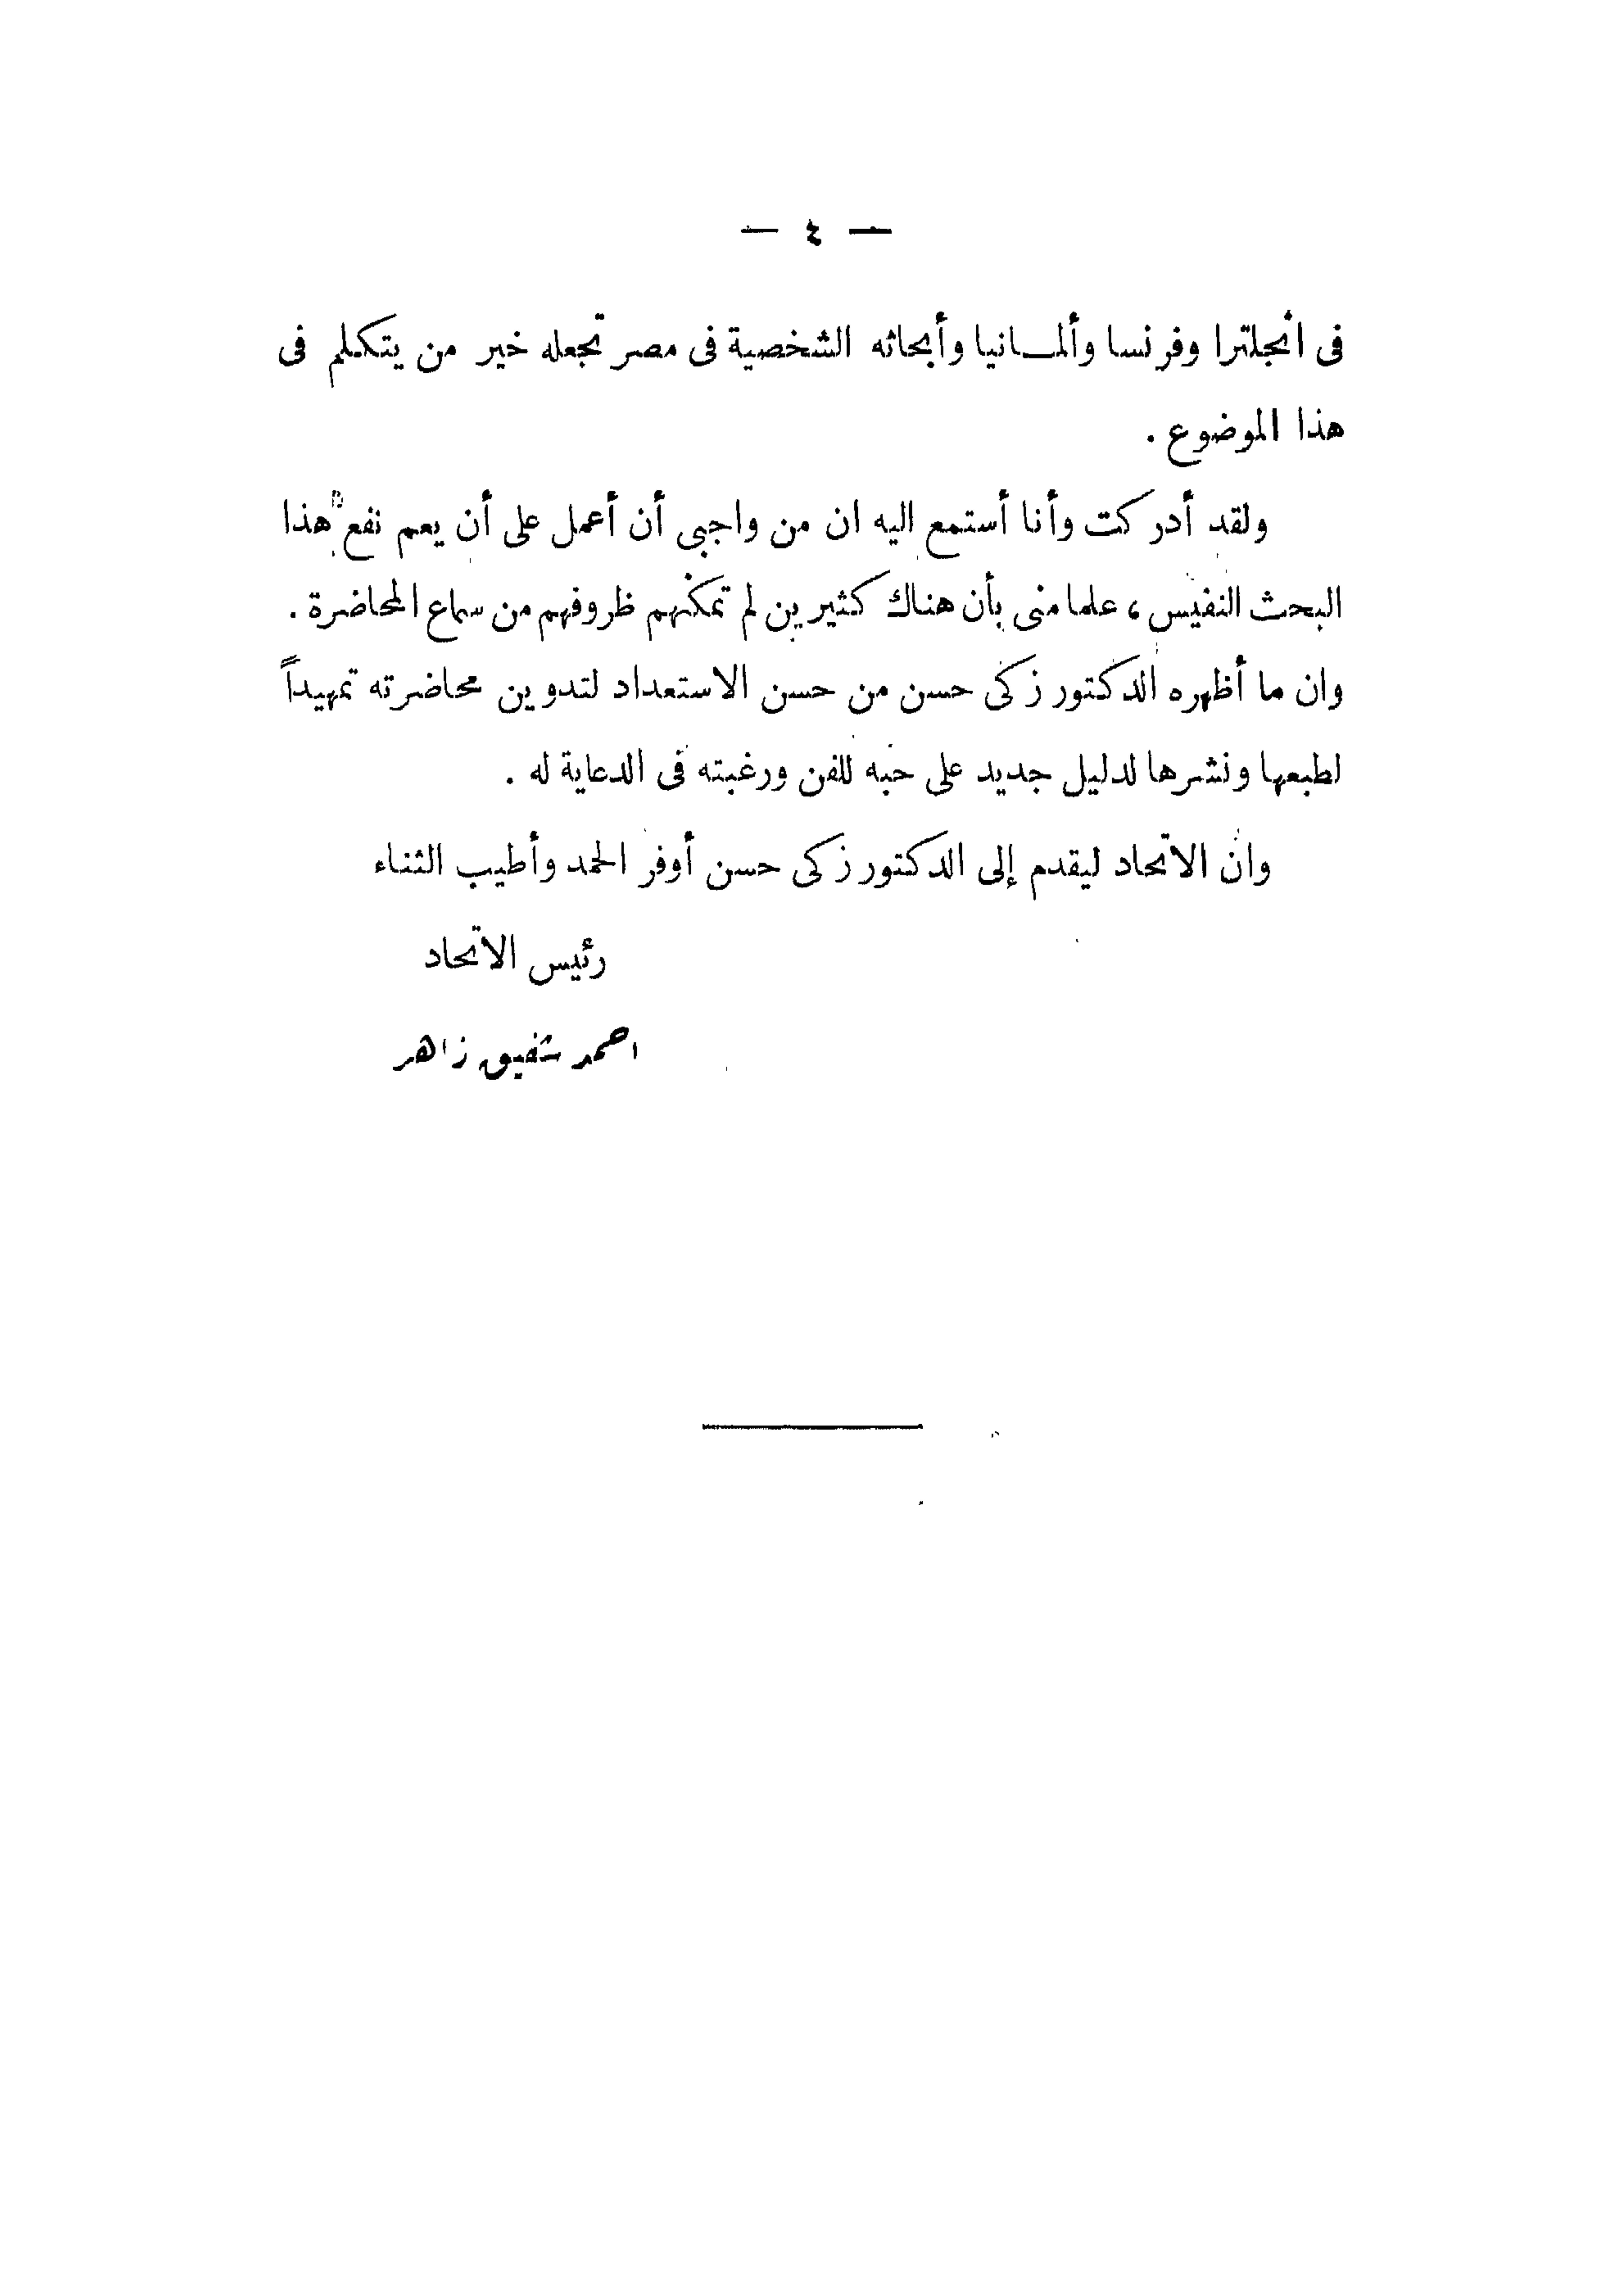 — ٤ —
فى انجلترا وفرنسا وألمـانيا وأبحاثه الشخصية فى مصر تجعله خير من يتكلم فى
هذا الموضوع .
ولقد أدركت وأنا أستمع اليه ان من واجبى أن أعمل على أن يعم نفع هذا
البحث النفيس ، علما منى بأن هناك كثيرين لم تمكنهم ظروفهم من سماع المحاضرة .
وان ما أظهره الدكتور زكى حسن من حسن الاستعداد لتدوين محاضرته تمهيداً
لطبعها ونشرها لدليل جديد على حبه للفن ورغبته فى الدعاية له .
وان الاتحاد ليقدم إلى الدكتور زكى حسن أوفر الحمد وأطيب الثناء
رئيس الاتحاد
احمد شفيق زاهر